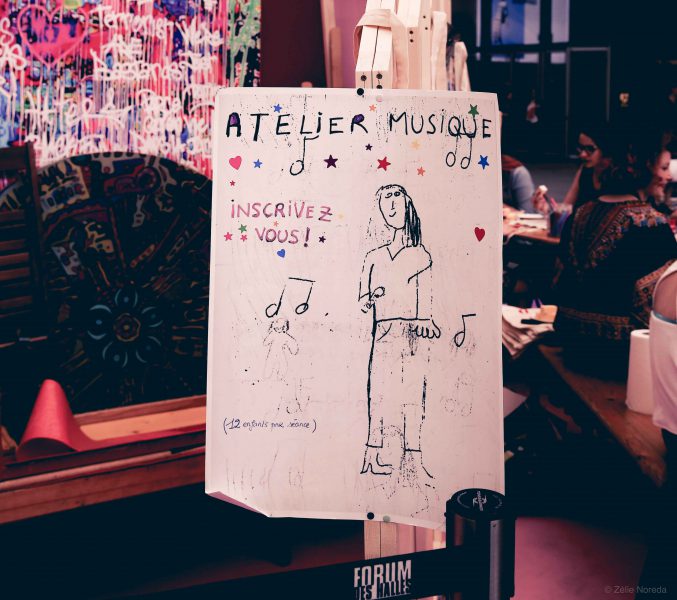 ATELIER MUSIQUE
INSCRIVEZ
VOUS!
(12 enfants par séance)
FORUM
DES HALLES
© Zélie Noreda